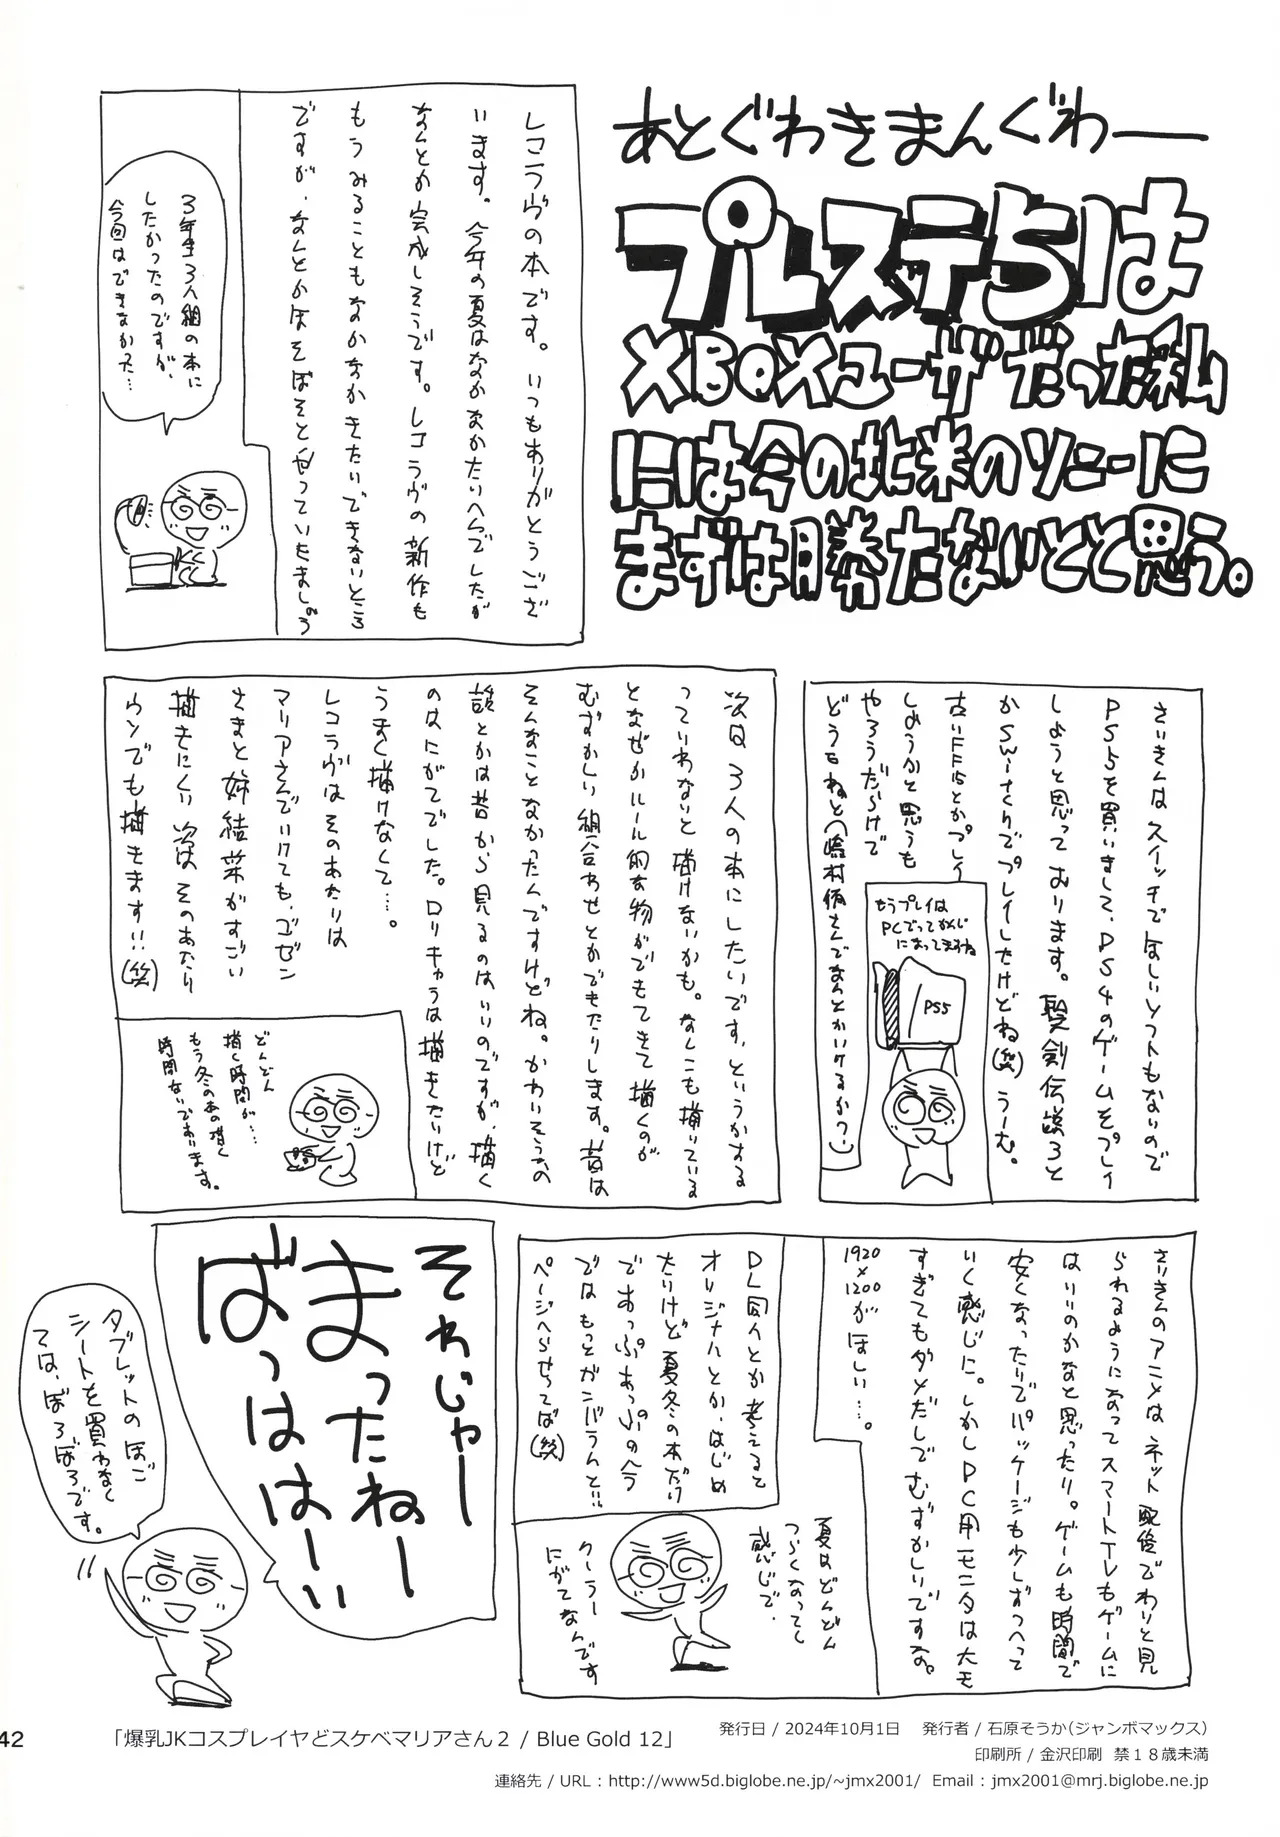 あとぐわきまんぐわー
プレステ5は
XBOXユーザだった私
には今の北米のソニーに
まずは勝たないとと思う。
レコラヴの本です。いつもありがとうござ
います。今年の夏はなかなかたいへんでしたが
なんとか完成しそうです。レコラヴの新作も
もうみることもなかなかきたいできないところ
ですが、なんとかほそぼそとやっていたましょう
3年生3人組の本に
したかったのですが、
今回はできなかった…
さいきんはスイッチでほしいソフトもないので
PS5を買いまして、PS4のゲームをプレイ
しようと思っております。聖剣伝説3と
かswitchでプレイしたけどね(笑)うーむ。
古いFF15とかプレイ
しようかと思うも
やろうだらけで
どうもねと
もうプレイは
PCでってかんじ
になってますね
PS5
次は3人の本にしたいです、というかする
っていわないと描けないかも。なんこも描いている
となぜかルール的な物がでてきて描くのが
むずかしい組合わせとかできたりします。昔は
そんなことなかったんですけどね。かわいそうなの
談とかは昔から見るのはいいのですが、描く
のはにがてでした。ロリキャラは描きたいけど
うまく描けなくて…。
レコラヴはそのあたりは
マリアさんでいけても、ゴゼン
さまと姉結菜がすごい
描きにくい 次はそのあたり
ウンでも描きます!!(笑)
どんどん
描く時間が…
もう冬のあの描く
時間ないであります。
さいきんのアニメはネット配信でわりと見
られるようになってスマートTVもゲームに
はいいのかなと思ったり。ゲームも時間で
安くなったりでパッケージも少しずつへって
いく感じに。しかしPC用モニタは大モ
すぎてもダメだしでむずかしいですな。
1920×1200がほしい…。
DL同人とか考えると
オリジナルとか、はじめ
たいけど夏冬の本だけ
であっぷあっぷのヘラ
ではもっとガンバらんと…
ページへらせってば(笑)
夏はどんどん
つらくなってく
感じで、
クーラー
にがてなんです
それじゃー
まったねー
ばっはは〜い
タブレットのほご
シートを買わなく
ては、ぼろぼろです。
42
「爆乳JKコスプレイヤどスケベマリアさん2 / Blue Gold 12」
発行日 / 2024年10月1日 発行者 / 石原そうか(ジャンボマックス)
印刷所 / 金沢印刷 禁18歳未満
連絡先 / URL : http://www5d.biglobe.ne.jp/~jmx2001/ Email : jmx2001@mrj.biglobe.ne.jp